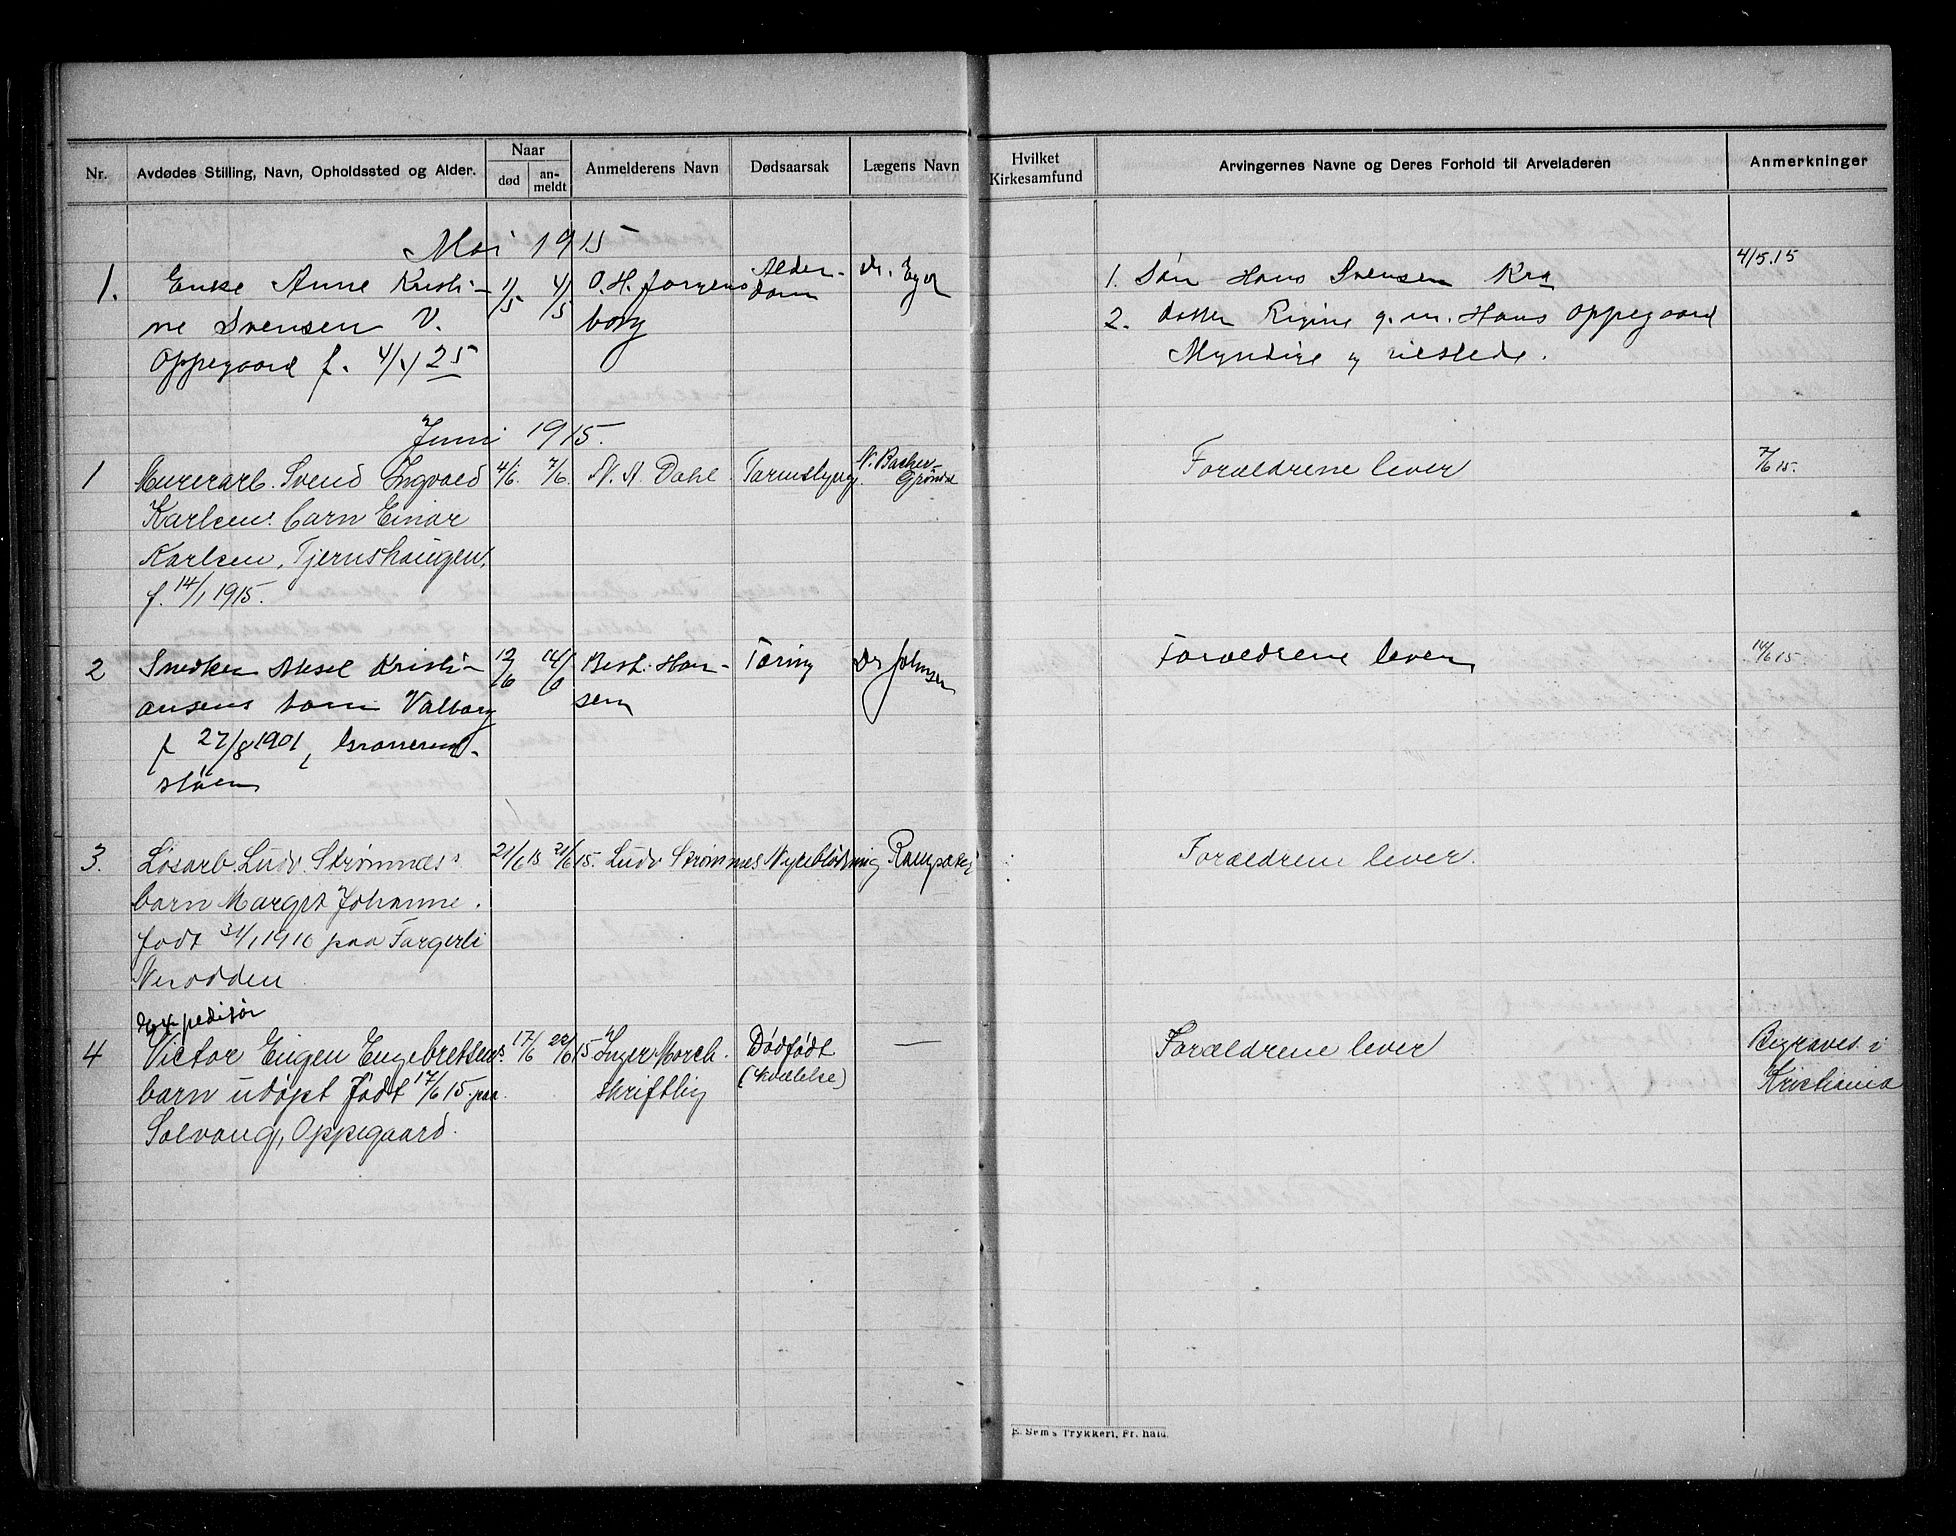 Nr. Avdødes Stilling, Navn, Opholdssted og Alder. Naar død anmeldt Anmelderens Navn Dødsaarsak Lægens Navn Hvilket Kirkesamfund Arvingernes Navne og Deres Forhold til Arveladeren Anmerkninger
Mai 1915
1. Enke Anne Kristi- 1/5 4/5 O. H. Jørgens Alder- dr. Eger 1. Søn Hans Svensen Kra 4/5.15
ne Svensen V. borg dom 2. datter Rigine g. m. Hans Oppegaard
Oppegaard f. 4/1 25 Myndige og tilstede.
Juni 1915.
1 Murerarb. Svend Ingvald 4/6. 7/6. N. A. Dahl Tarmslyng N. Backer- Grøndal Forældrene lever 7/6 15.
Karlsens barn Einar
Karlsen, Tjernshaugen,
f. 14/1 1915.
2 Snedker Aksel Kristi- 12/6 14/6 Best. Han- Tæring Dr Johnsen Forældrene lever 14/6 15.
ansens barn Valborg sen
f 27/8 1901,
støen
3. Løsarb. Ludv. Strømnæs's 21/6 15 21/6 15. Ludv Strømnes Nyreblødning Forældrene lever.
barn Margit Johanne.
født 31/1 1910 paa Fagerli
Nesodden
Expeditør
4 Victor Eugen Engebretsens 17/6 22/6 15 Inger Morch. Dødfødt — Forældrene lever Begraves i
barn udøpt født 17/6 15. paa skriftlig (kvælelse) Kristiania
Solvang, Oppegaard.
E. Sem's Trykkeri, Fr.hald.